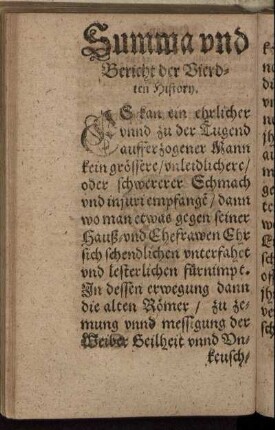 Summa vnd
Bericht der Vierd-
ten History.
ES kan ein ehrlicher
vnnd zu der Tugend
aufferzogener Mann
kein grössere / vnleidlichere /
oder schwererer Schmach
vnd injuri empfangẽ / dann
wo man etwas gegen seiner
Hauß / vnd Ehefrawen Ehr
sich schendlichen vnterfahet
vnd lesterlichen fürnimpt.
In dessen erwegung dann
die alten Römer / zu ze-
mung vnnd messigung der
Weiber Geilheit vnnd Vn-
keusch /